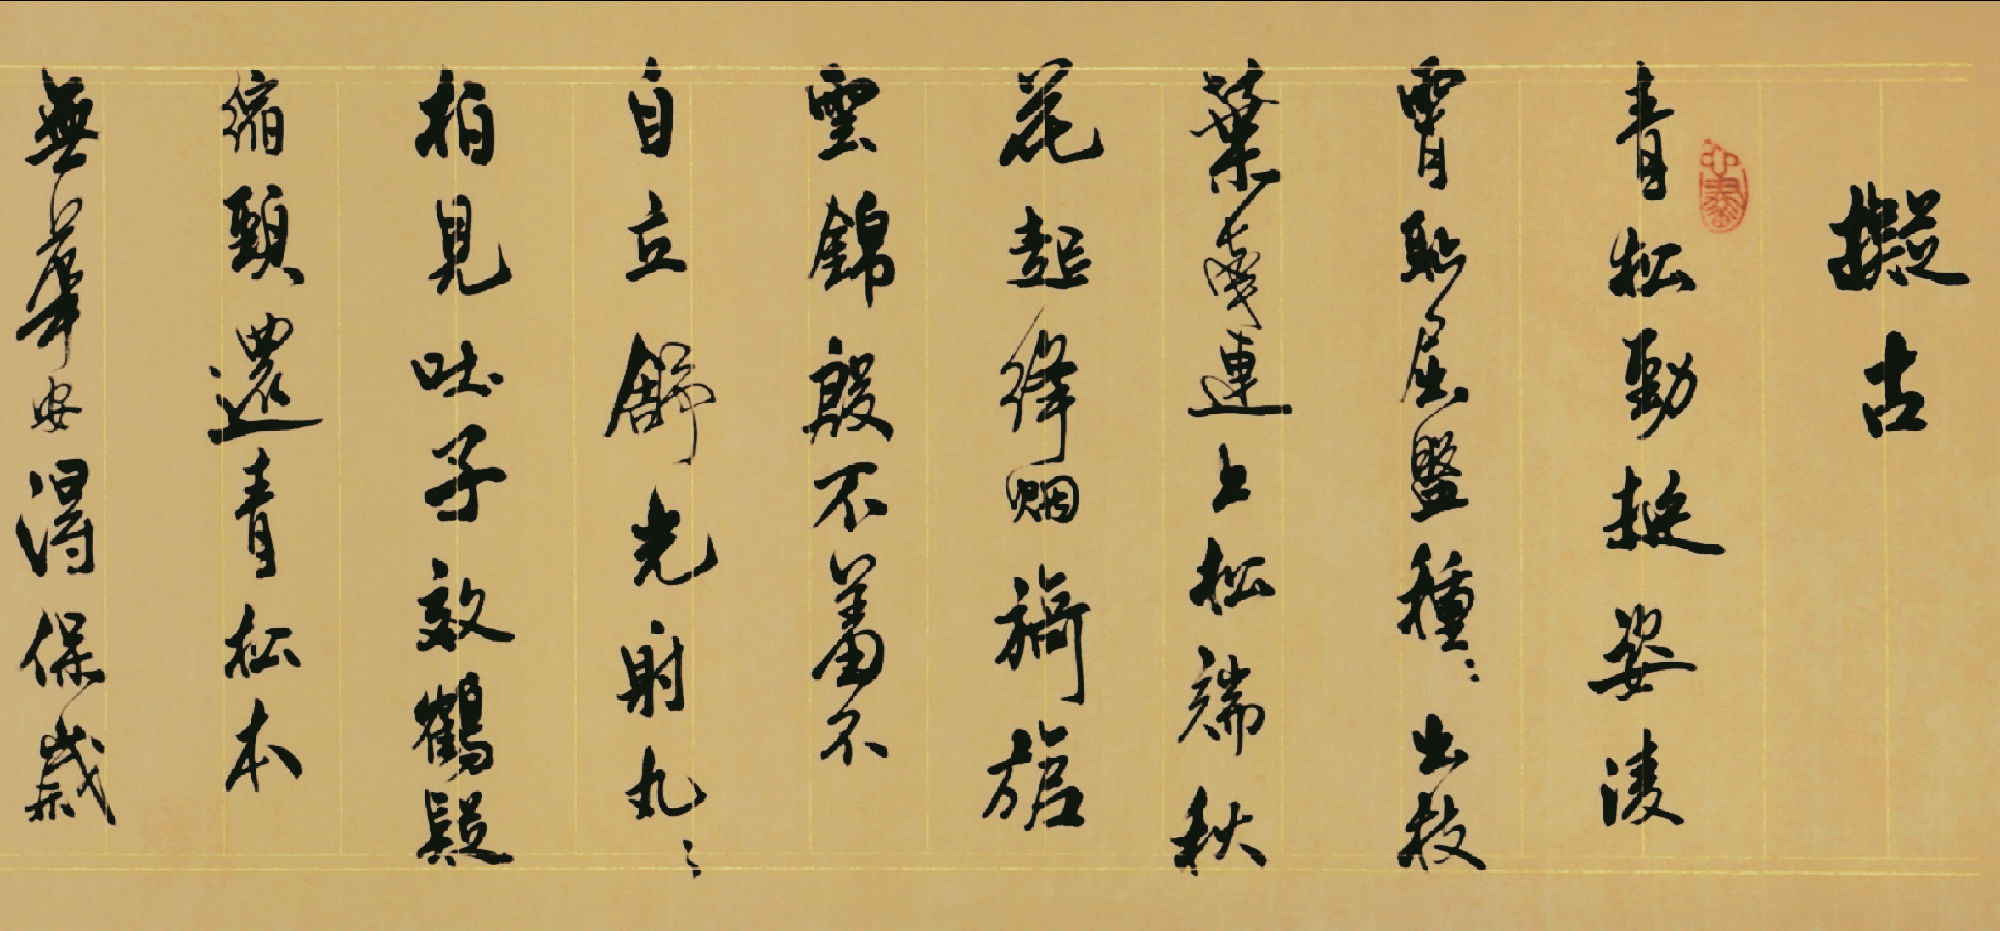 擬古
青松勁挺姿凌
霄恥屈盤種種出枝
葉牽連上松端秋
花起絳烟旖旎
雲錦殷不羞不
自立舒光射丸丸
柏見吐子效鶴疑
縮頸還青松本
無華安得保歲